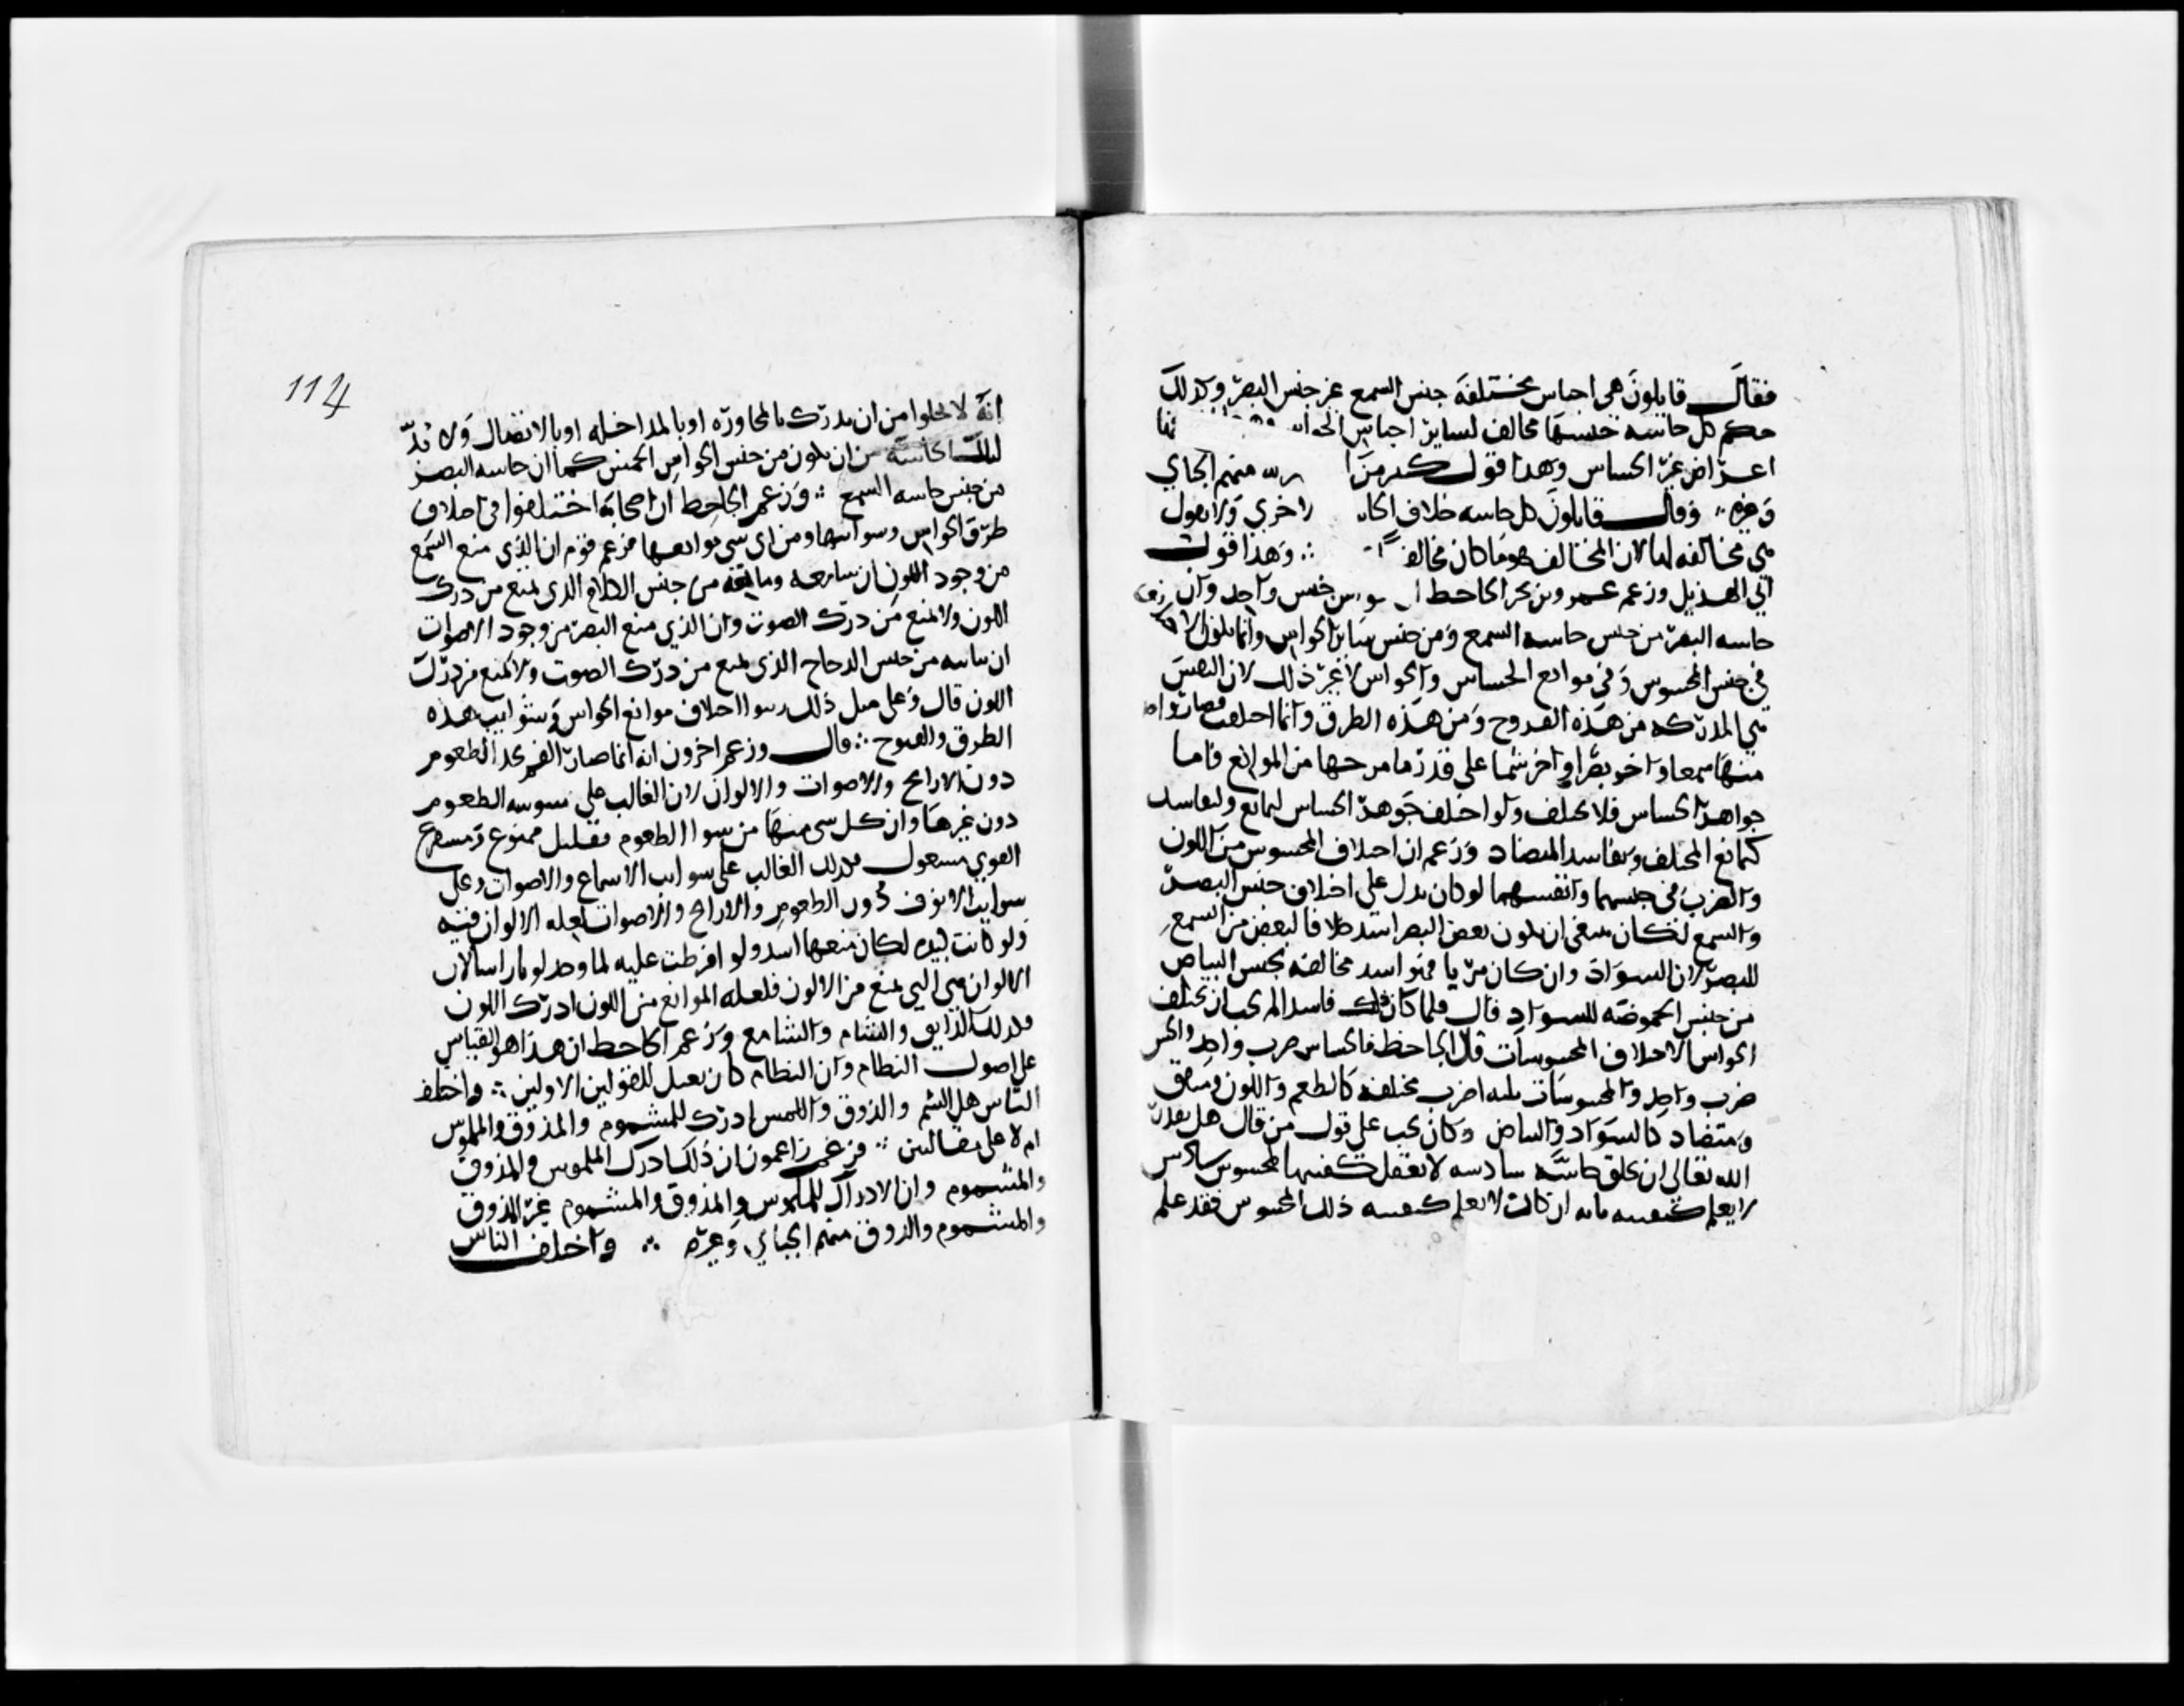 فقال قايلون هى اجناس مختلفة جنس السمع غير جنس البصر وكذلك
حكم كل حاسه جنسها مخالف لساير اجناس الحواس
اعراض غير الحساس وهذا قول كثير من منهم الجباي
وغيره وقال قايلون كل حاسه خلاف الحا اخرى ولا نقول
هى مخالفه لها لان المخالف هو ما كان مخالفا وهذا قول
ابي الهذيل وزعم عمرو بن بحر الجاحظ جنس واحد وان
حاسه البصر من جنس حاسه السمع ومن جنس ساير الحواس وانما يكون الا
في جنس المحسوس وفي موانع الحساس والحواس لا غير ذلك لان النفس
هى المدركه من هذه الفتوح ومن هذه الطرق وانما اختلفت فصار واحد
منها سمعا واخر بصرا واخر شما على قدر ما مازجها من الموانع فاما
جواهر الحساس فلا يختلف ولو اختلف جوهر الحساس لتمانع ولتفاسد
كتمانع المختلف وتفاسد المتضاد وزعم ان اختلاف المحسوس من اللون
والضرب في جنسهما وانفسهما لو كان يدل على اختلاف جنس البصر
والسمع لكان ينبغي ان يكون بعض البصر اشد خلافا لبعض من السمع
للبصر لان السواد وان كان مريا فهو اشد مخالفه لجنس البياض
من جنس الحموضه للسواد قال فلما كان ذلك فاسدا لم يجب ان يختلف
الحواس لاختلاف المحسوسات قال الجاحظ فالحساس ضرب واحد والحس
ضرب واحد والمحسوسات ثلثه اضرب مختلف كالطعم واللون ومتفق
ومتضاد كالسواد والبياض وكان يجب على قول من قال هل يقدر
الله تعالى ان يخلق حاسه سادسه لا نعقل كيفيتها لمحسوس سادس
لا يعلم كيفيته بانه ان كان لا نعلم كيفيه ذلك المحسوس فقد علم
114
انه لا يخلوا من ان يدرك بالمجاوره او بالمداخله او بالاتصال ولا بد
لتلك الحاسه من ان يكون من جنس الحواس الخمس كما ان حاسه البصر
من جنس حاسه السمع وزعم الجاحظ ان اصحابه اختلفوا في اختلاف
طرق الحواس وشوايبها ومن اي شي موانعها فزعم قوم ان الذي منع السمع
من وجود اللون ان شايبه ومانعه من جنس الظلام الذي يمنع من درك
اللون ولا يمنع من درك الصوت وان الذي منع البصر من وجود الاصوات
ان شايبه من جنس الزجاج الذي يمنع من درك الصوت ولا يمنع من درك
اللون قال وعلى مثل ذلك رتبوا اختلاف موانع الحواس وشوايب هذه
الطرق والفتوح قال وزعم اخرون انه انما صار الفم يجد الطعوم
دون الارايح والاصوات والالوان لان الغالب على شوبه الطعوم
دون غيرها وان كل شي منها من سوا الطعوم فقليل ممنوع ومستفرغ
القوي مشغول فكذلك الغالب على شوايب الاسماع الاصوات وعلى
شوايب الانوف دون الطعوم والارايح والاصوات لعله الالوان فيه
ولو كانت كثيره لكان منعها اشد ولو افرطت عليه لما وجد لونا راسا لان
الالوان هى التي تمنع من الالوان فلعله الموانع من اللون ادرك اللون
وكذلك الذايق والشام والسامع وزعم الجاحظ ان هذا هو القياس
على اصول النظام وان النظام كان يعتل للقولين الاولين واختلف
الناس هل الشم والذوق واللمس ادرك للمشموم والمذوق والملموس
ام لا على مقالتين فزعم زاعمون ان ذلك ادرك الملموس والمذوق
والمشموم وان الادراك للملموس والمذوق والمشموم غير الذوق
والمشموم والذوق منهم الجباي وغيره واختلف الناس